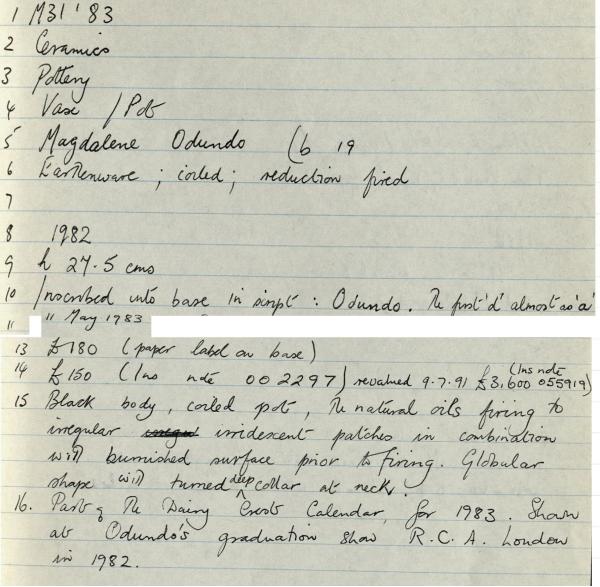 1 M31 '83
2 Ceramics
3 Pottery
4 Vase / Pot
5 Magdalene Odundo (b 19
6 Earthenware ; coiled ; reduction fired
7
8 1982
9 h 27.5 cms
10 Inscribed into base in script : Odundo. The first 'd' almost as 'a'
11 " May 1983
13 £180 (paper label on base)
14 £150 (Ins note 002297) revalued 9.7.91 £3,600 (Ins note 055919)
15 Black body, coiled pot, The natural oils firing to
irregular irridescent patches in combination
with burnished surface prior to firing. Globular
shape with turned deep collar at neck.
16. Part of The Dairy Crest Calendar, for 1983. Shown
at Odundo's graduation show R.C.A. London
in 1982.